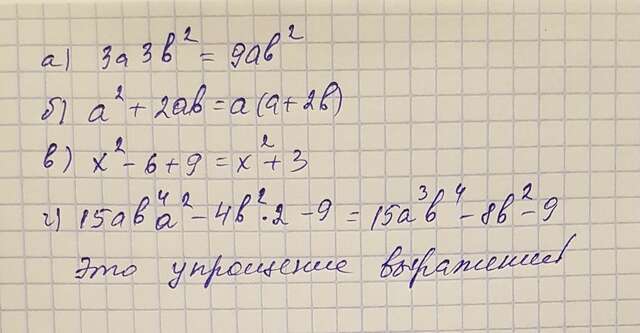 а) 3а 3в² = 9ав²
б) а² + 2ав = а(а + 2в)
в) х² - 6 + 9 = х² + 3
г) 15ав⁴а² - 4в²·2 - 9 = 15а³в⁴ - 8в² - 9
Это упрощение выражений